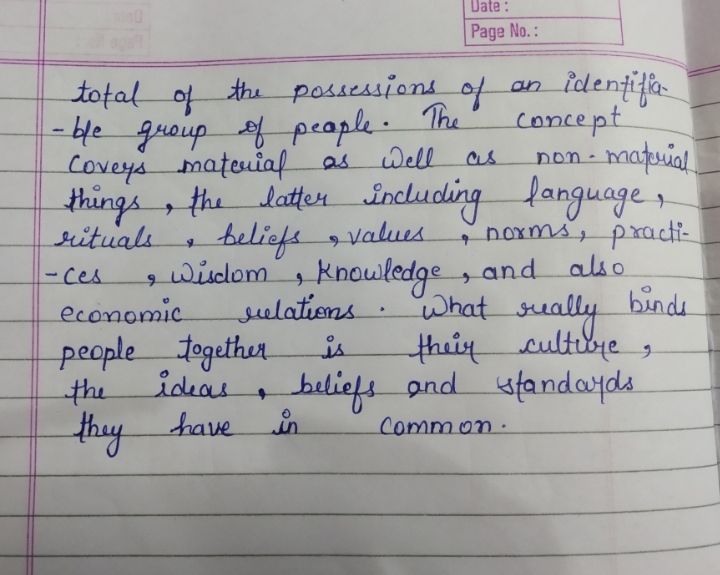 Date :
Page No. :
total of the possessions of an identifia-
-ble group of people. The concept
covers material as well as non-material
things, the latter including language,
rituals, beliefs, values, norms, practi-
-ces, wisdom, knowledge, and also
economic relations. What really binds
people together is their culture,
the ideas, beliefs and standards
they have in common.